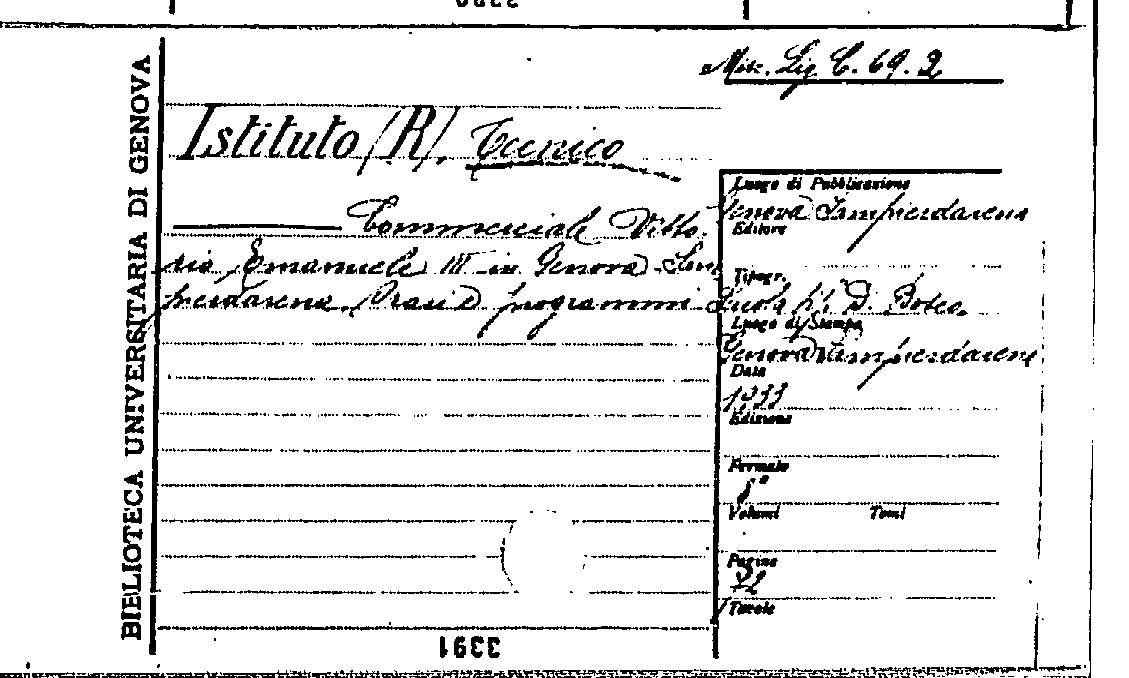 BIBLIOTECA UNIVERSITARIA DI GENOVA
Misc. Lig. C. 69. 2
Istituto (R). Tecnico
Commerciale Vitto-
rio Emanuele III in Genova Sam
pierdarena. Orari e programmi
Luogo di Pubblicazione
Genova Sampierdarena
Editore
Tipogr.
Scuola D. Bosco
Luogo di Stampa
Genova Sampierdarena
Data
1933
Edizione
Formato
8°
Volumi Tomi
Pagine
72
Tavole
3391